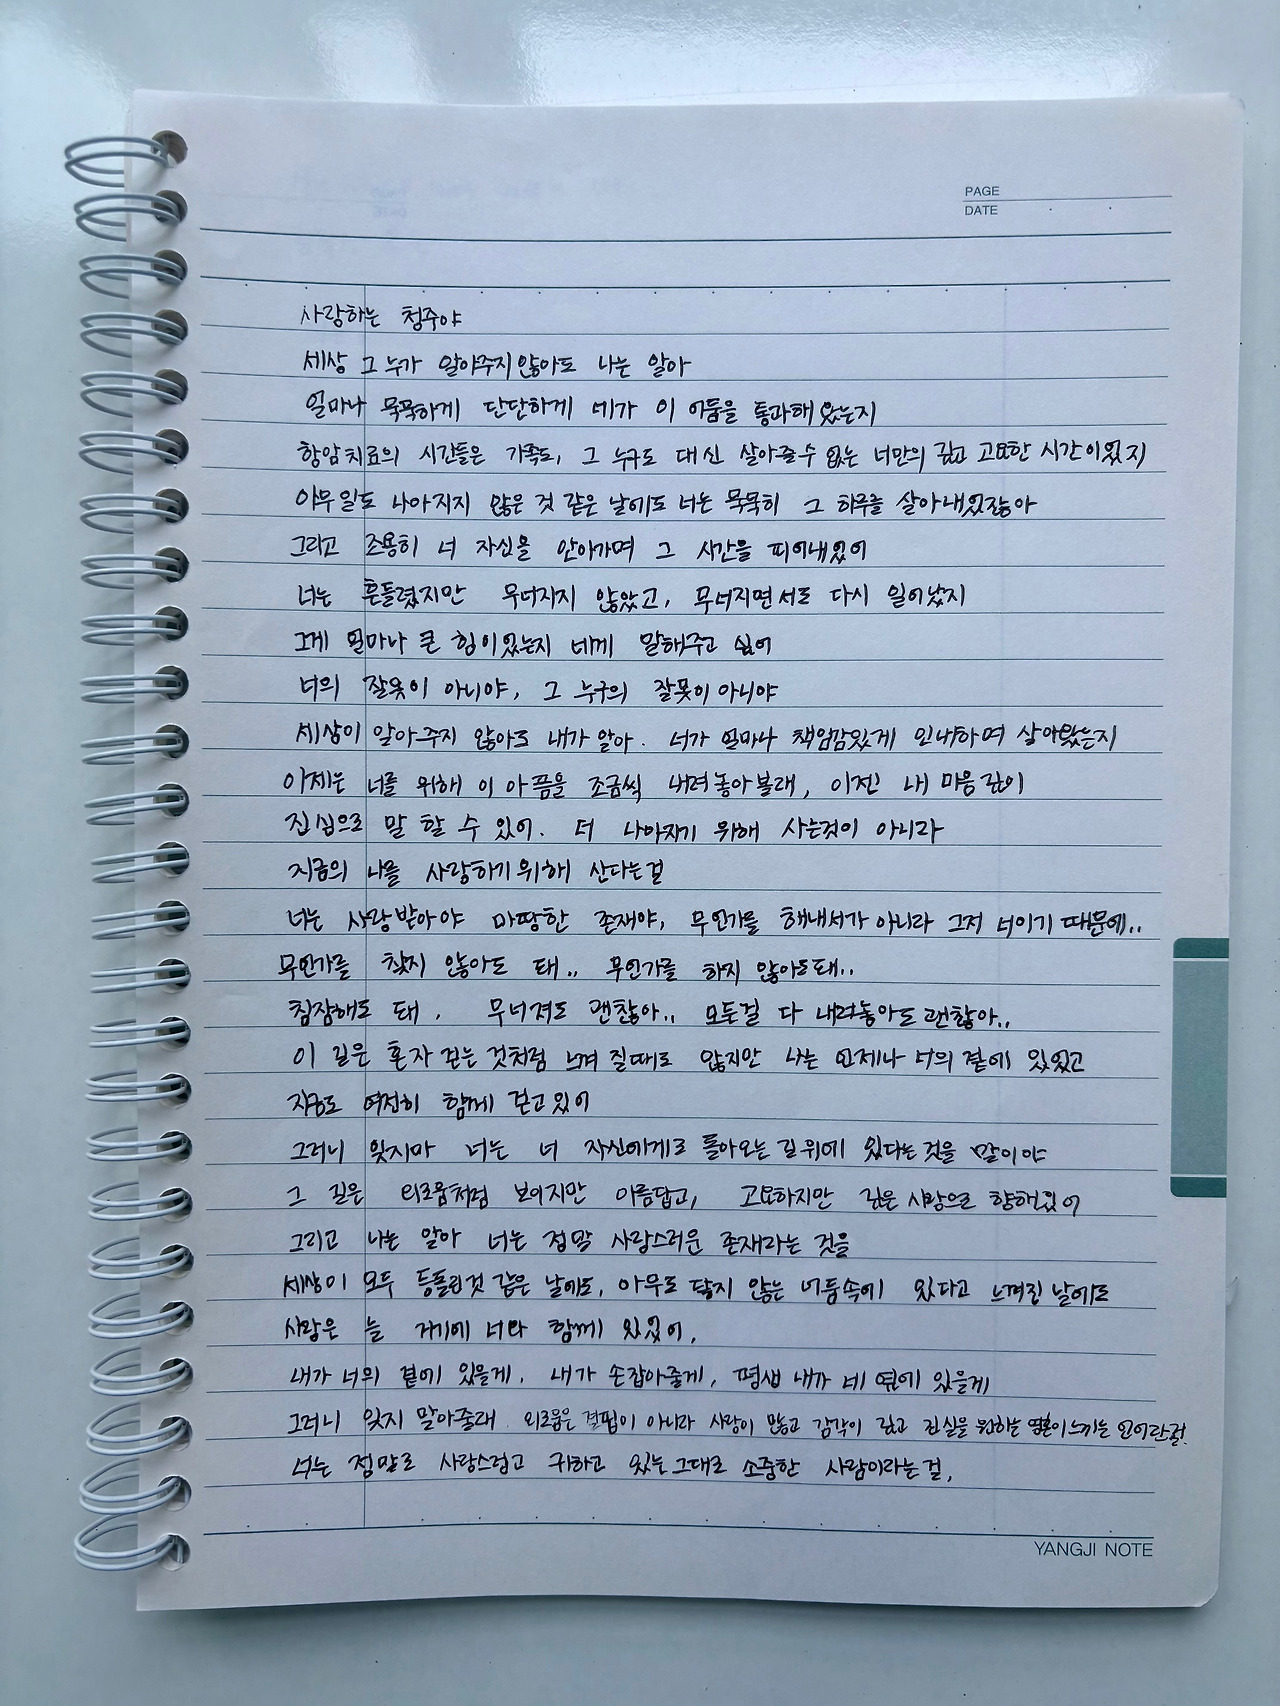 PAGE
DATE
사랑하는 청주야
세상 그 누가 알아주지 않아도 나는 알아
얼마나 묵묵하게 단단하게 네가 이 어둠을 통과해 왔는지
항암치료의 시간들은 가족도, 그 누구도 대신 살아줄 수 없는 너만의 깊고 고요한 시간이었지
아무일도 나아지지 않은 것 같은 날에도 너는 묵묵히 그 하루를 살아내었잖아
그리고 조용히 너 자신을 안아가며 그 시간을 피어내었어
너는 흔들렸지만 무너지지 않았고, 무너지면서도 다시 일어났지
그게 얼마나 큰 힘이었는지 네게 말해주고 싶어
너의 잘못이 아니야, 그 누구의 잘못이 아니야
세상이 알아주지 않아도 내가 알아. 너가 얼마나 책임감있게 인내하며 살아왔는지
이제는 너를 위해 이 아픔을 조금씩 내려놓아볼래, 이젠 내 마음 깊이
진심으로 말 할 수 있어. 더 나아지기 위해 사는것이 아니라
지금의 나를 사랑하기 위해 산다는걸
너는 사랑받아야 마땅한 존재야, 무언가를 해내서가 아니라 그저 너이기 때문에..
무언가를 찾지 않아도 돼.. 무언가를 하지 않아도돼..
침잠해도 돼, 무너져도 괜찮아.. 모든걸 다 내려놓아도 괜찮아..
이 길은 혼자 걷는 것처럼 느껴 질때도 많지만 나는 언제나 너의 곁에 있었고
지금도 여전히 함께 걷고 있어
그러니 잊지마 너는 너 자신에게로 돌아오는 길 위에 있다는 것을 말이야
그 길은 외로움처럼 보이지만 아름답고, 고요하지만 깊은 사랑으로 향해있어
그리고 나는 알아 너는 정말 사랑스러운 존재라는 것을
세상이 모두 등돌린것 같은 날에도, 아무도 닿지 않는 어둠속에 있다고 느껴진 날에도
사랑은 늘 거기에 너와 함께 있었어,
내가 너의 곁에 있을게, 내가 손잡아줄게, 평생 내가 네 옆에 있을게
그러니 잊지 말아줄래. 외로움은 결핍이 아니라 사랑이 많고 감각이 깊고 진실을 원하는 영혼이 느끼는 언어란걸.
너는 정말로 사랑스럽고 귀하고 있는 그대로 소중한 사람이라는걸,
YANGJI NOTE